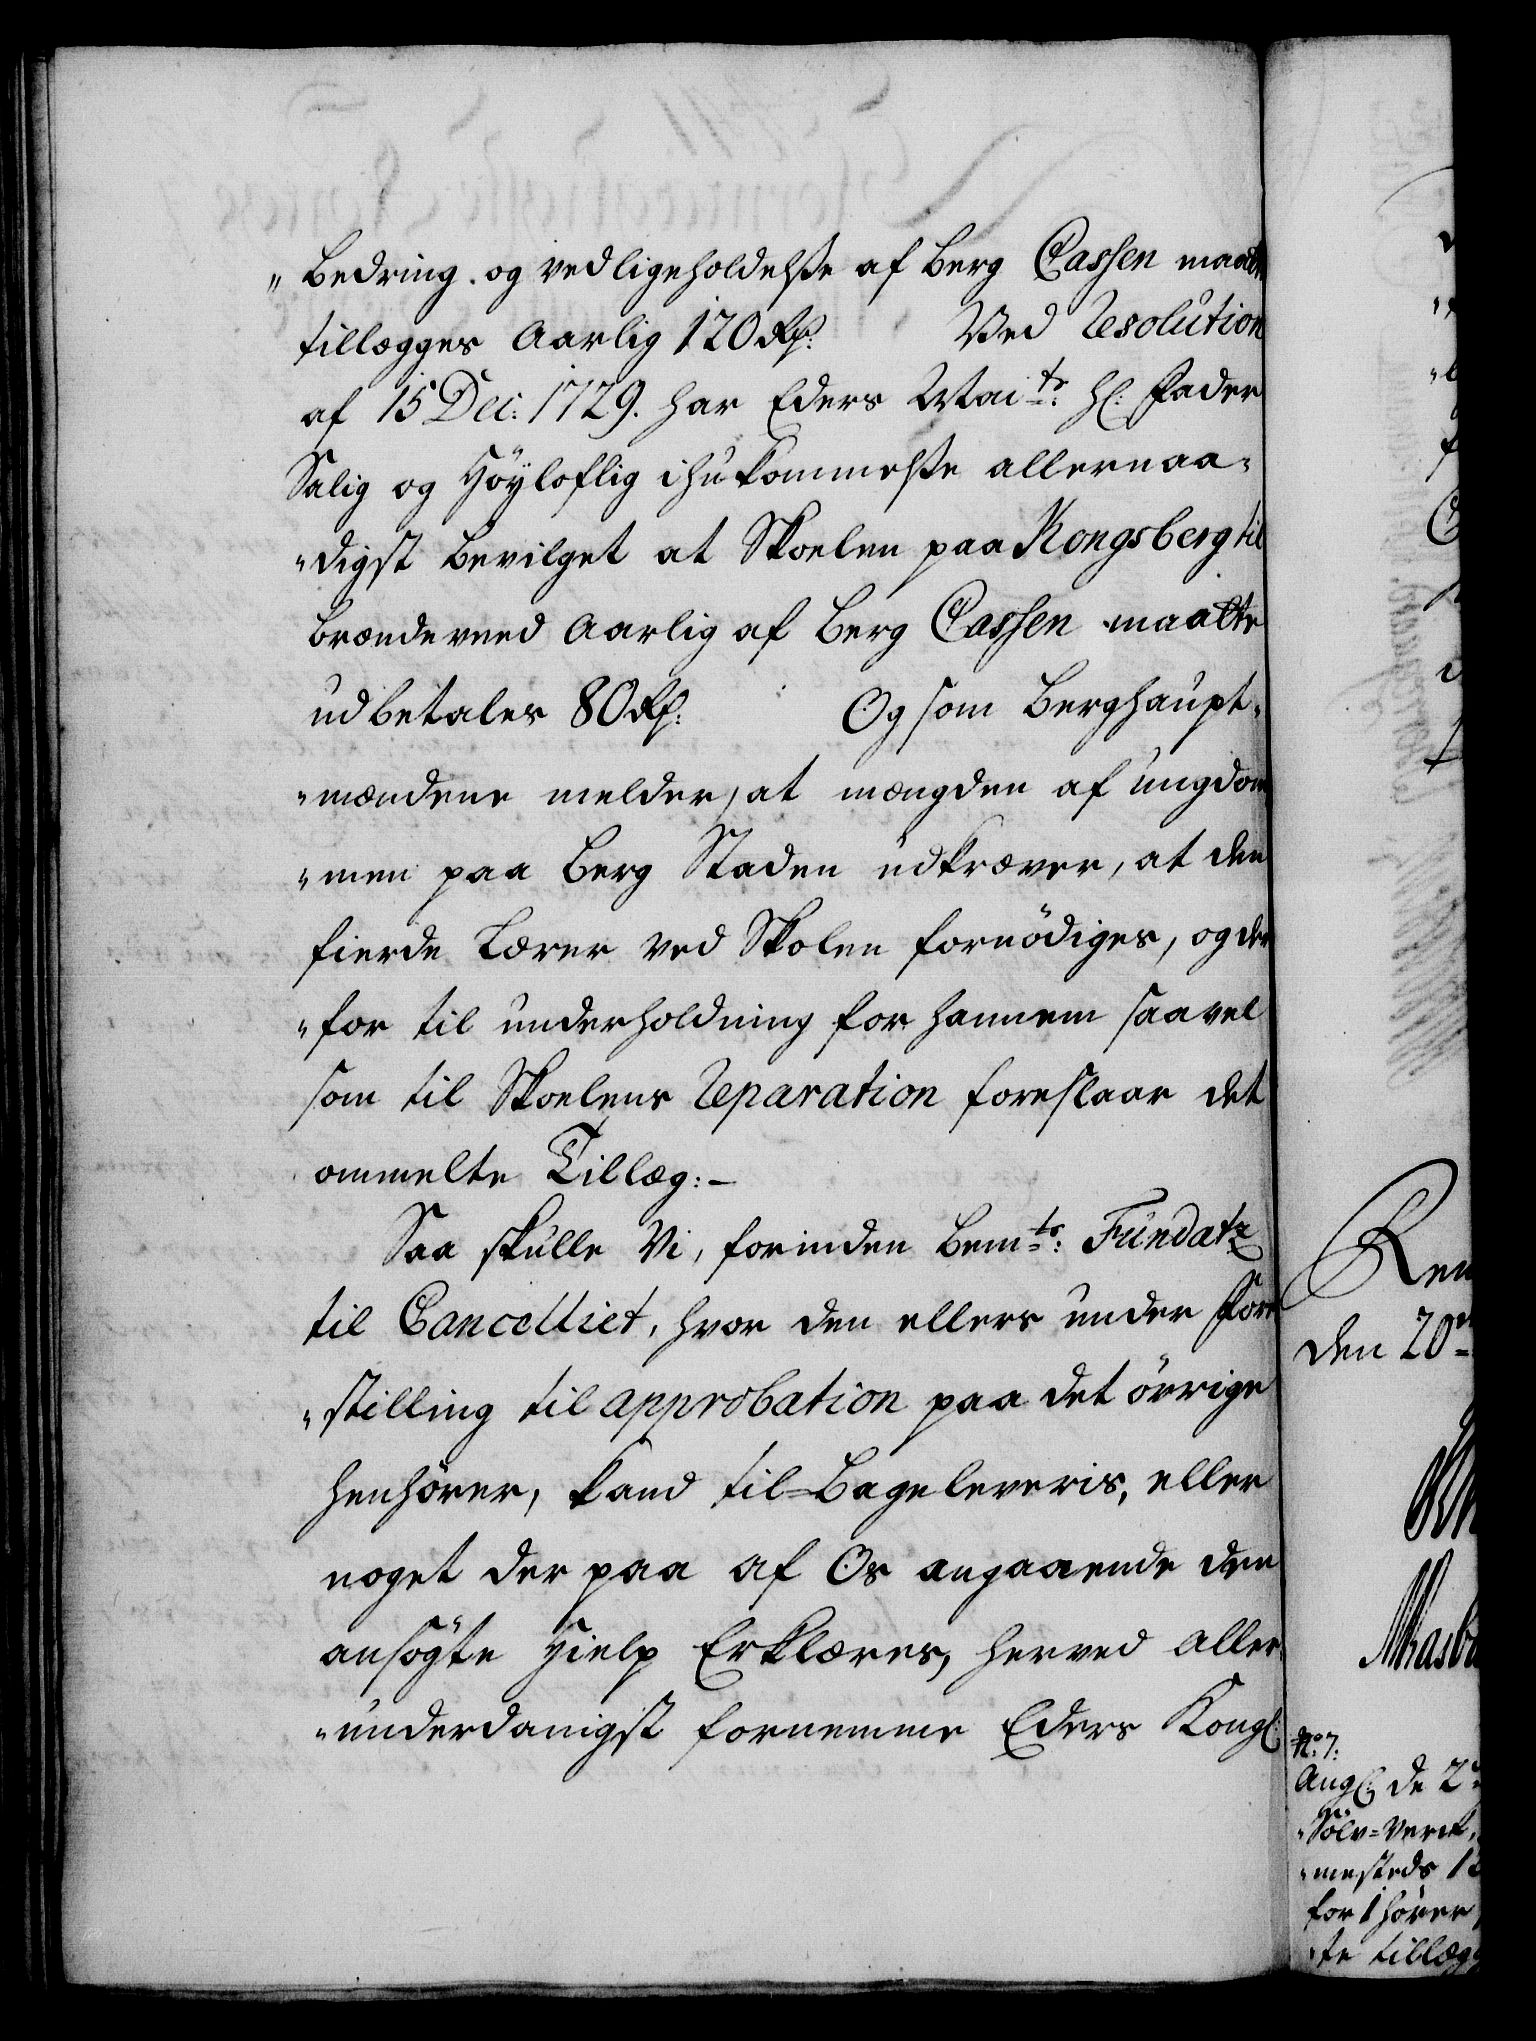 "bedring og vedligeholdelse af Berg Cassen maatte
tillægges Aarlig 120 Rd: Ved Resolution
af 15 Dec: 1729. har Eders Mai:ts: Hr: Fader
Salig og Höyloflig ihukommelse allernaa-
"digst bevilget at Skoelen paa Kongsberg til
brændeveed Aarlig af Berg Cassen maatte
udbetales 80 Rd: Og som Berghaupt-
"mændene melder, at mængden af ungdom-
"men paa Berg Staden udkræver, at den
fierde Lærer ved Skolen fornödiges, og der
"for til underholdning for hannem saavel
som til Skoelens Reparation foreslaar det
ommelte Tillæg:-
Saa skulle Vi, forinden bem:te: Fundatz
til Cancelliet, hvor den ellers under Fore
"stilling til approbation paa det övrige
henhörer, kand til-bageleveris, eller
noget der paa af Os angaaende den
ansögte Hielp Erklæres, herved aller
"underdanigst fornemme Eders Kongl:
den 20
No: 7:
Angl: de 2
"Sölv-Verck,
"mesteds 12
for 1 hörer
"te tillæg